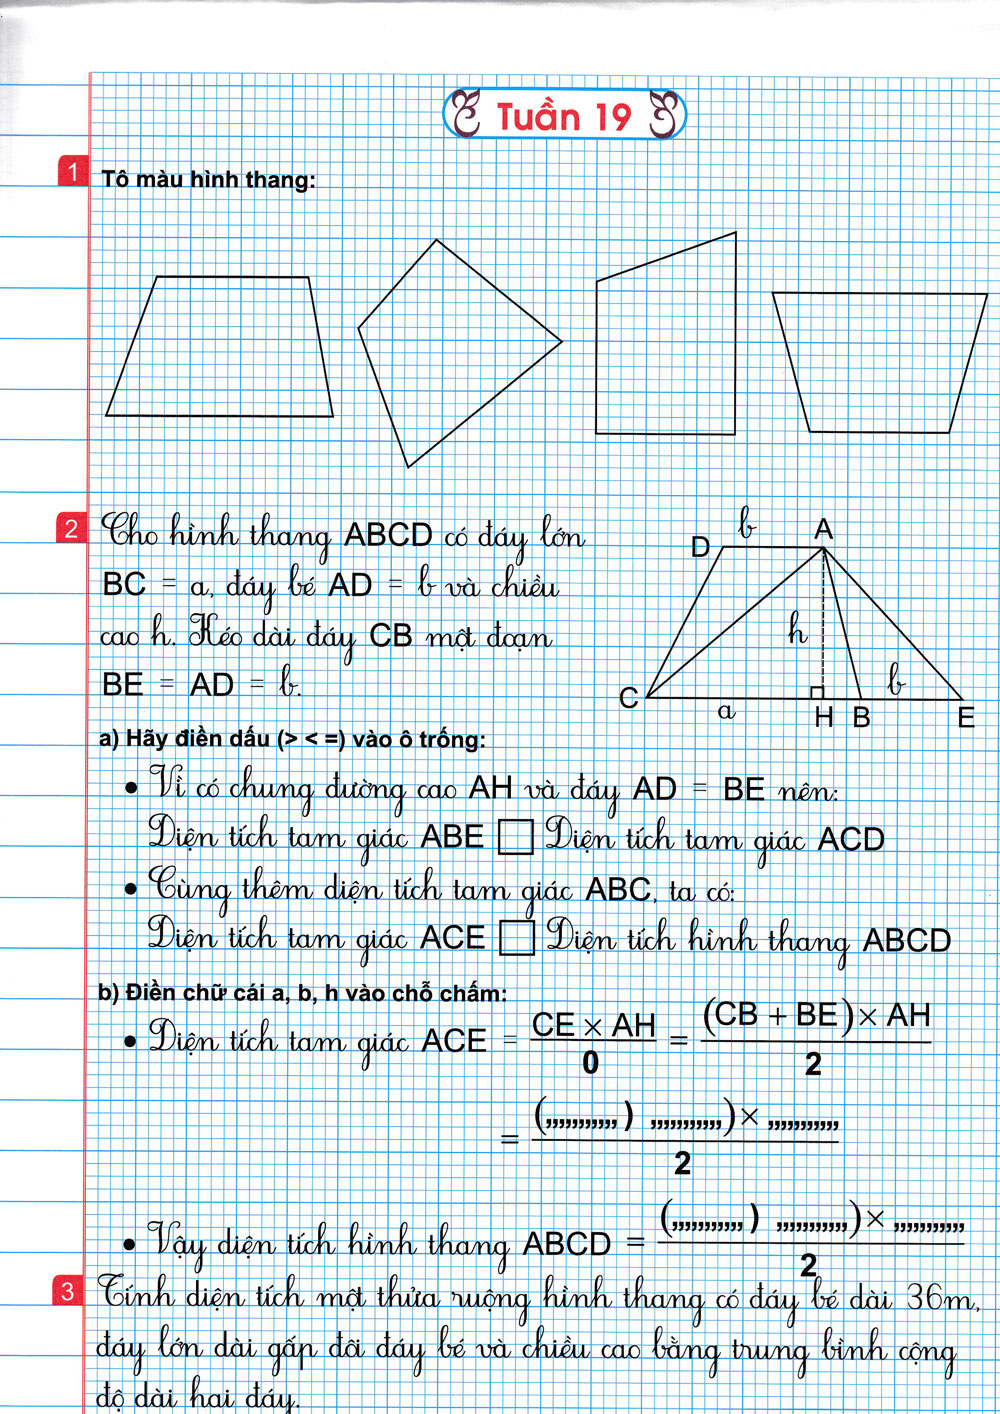 Tuần 19
1 Tô màu hình thang:
2 Cho hình thang ABCD có đáy lớn
BC = a, đáy bé AD = b và chiều
cao h. Kéo dài đáy CB một đoạn
BE = AD = b.
b
D A
h
b
C a H B E
a) Hãy điền dấu (> < =) vào ô trống:
• Vì có chung đường cao AH và đáy AD = BE nên:
Diện tích tam giác ABE □ Diện tích tam giác ACD
• Cùng thêm diện tích tam giác ABC, ta có:
Diện tích tam giác ACE □ Diện tích hình thang ABCD
b) Điền chữ cái a, b, h vào chỗ chấm:
• Diện tích tam giác ACE = CE × AH / 0 = (CB + BE) × AH / 2
= (,,,,,,,,,,, ) ,,,,,,,,,,,) × ,,,,,,,,,,, / 2
• Vậy diện tích hình thang ABCD = (,,,,,,,,,,, ) ,,,,,,,,,,,) × ,,,,,,,,,,, / 2
3 Tính diện tích một thửa ruộng hình thang có đáy bé dài 36m,
đáy lớn dài gấp đôi đáy bé và chiều cao bằng trung bình cộng
độ dài hai đáy.